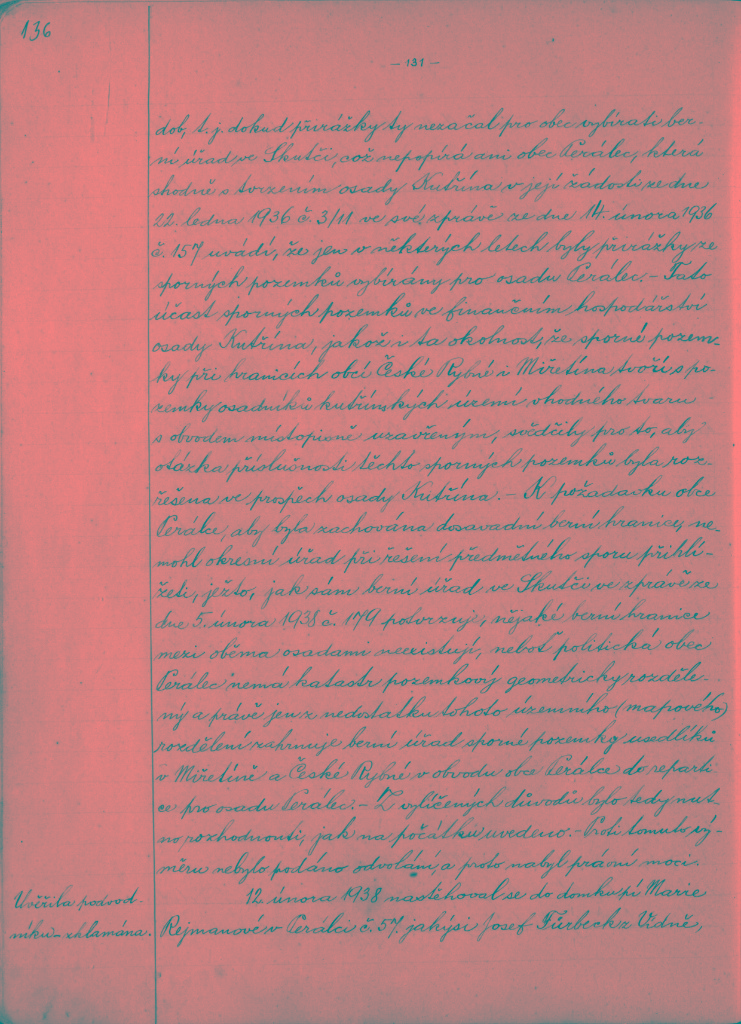 136
- 131 -
dob, t. j. dokud přirážky ty nezačal pro obec vybírati ber-
ní úřad ve Skutči, což nepopírá ani obec Perálec, která
shodně s tvrzením osady Kutřína v její žádosti ze dne
22. ledna 1936 č. 3/11 ve své zprávě ze dne 14. února 1936
č. 157 uvádí, že jen v některých letech byly přirážky ze
sporných pozemků vybírány pro osadu Perálec. - Tato
účast sporných pozemků ve finančním hospodářství
osady Kutřína, jakož i ta okolnost, že sporné pozem-
ky při hranicích obcí České Rybné i Miřetína tvoří s po-
zemky osadníků kutřínských území vhodného tvaru
s obvodem místopisně uzavřeným, svědčily pro to, aby
otázka příslušnosti těchto sporných pozemků byla roz-
řešena ve prospěch osady Kutřína. - K požadavku obce
Perálce, aby byla zachována dosavadní berní hranice, ne-
mohl okresní úřad při řešení předmětného sporu přihlí-
žeti, ježto, jak sám berní úřad ve Skutči ve zprávě ze
dne 5. února 1938 č. 179 potvrzuje, nějaké berní hranice
mezi oběma osadami neexistují, neboť politická obec
Perálec nemá katastr pozemkový geometricky rozděle-
ný a právě jen z nedostatku tohoto územního (mapového)
rozdělení zahrnuje berní úřad sporné pozemky usedlíků
v Miřetíně a České Rybné v obvodu obce Perálce do reparti-
ce pro osadu Perálec. - Z vylíčených důvodů bylo tedy nut-
no rozhodnouti, jak na počátku uvedeno. - Proti tomuto vý-
měru nebylo podáno odvolání a proto nabyl právní moci.
Uvěřila podvod-
níku - zklamána.
12. února 1938 nastěhoval se do domku pí Marie
Rejmanové v Perálci č. 57. jakýsi Josef Fürbeck z Vídně,